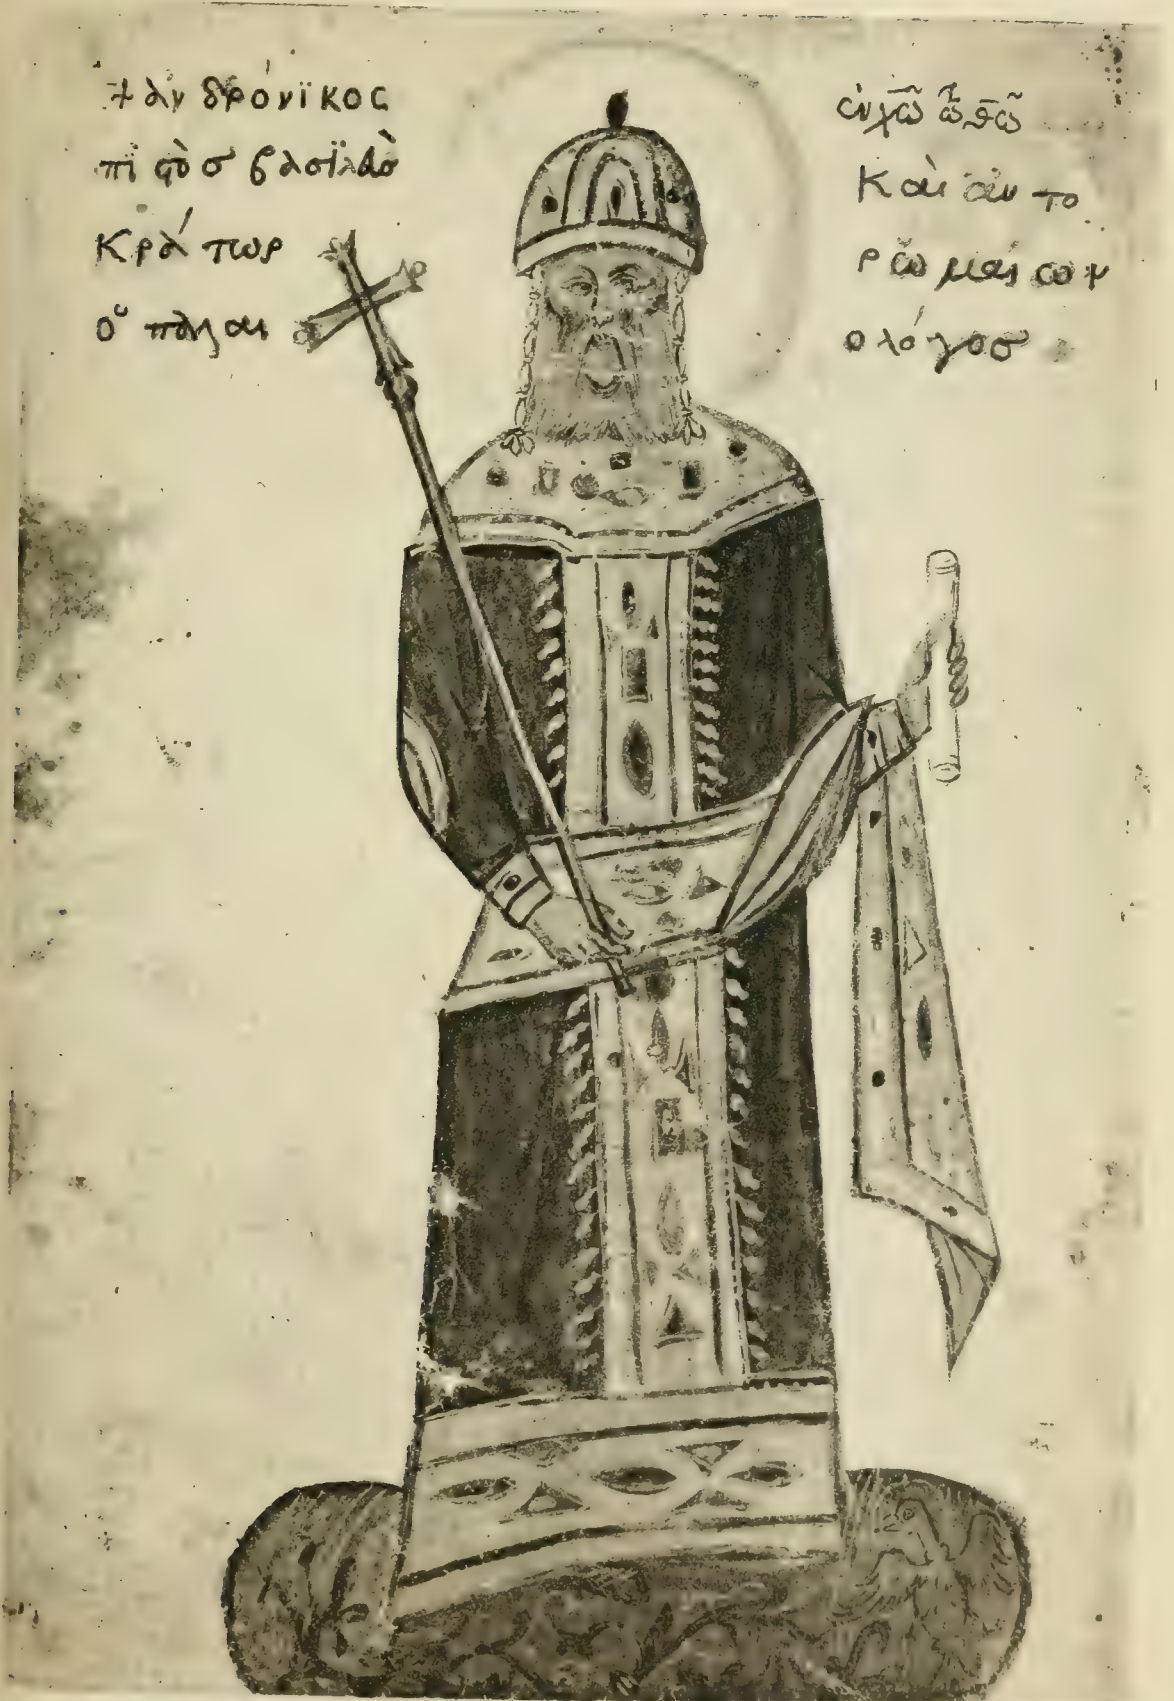 + ἀνδρόνϊκος
πϊστὸσ βασϊλεὺσ
κράτωρ
ὁ παλαι
ἐν χ̅ω̅ τ̅ω̅ θ̅ω̅
καὶ αυτο
ρωμαίων
ολόγοσ